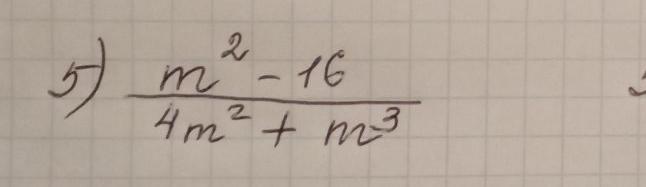 5) m² - 16
4m² + m³